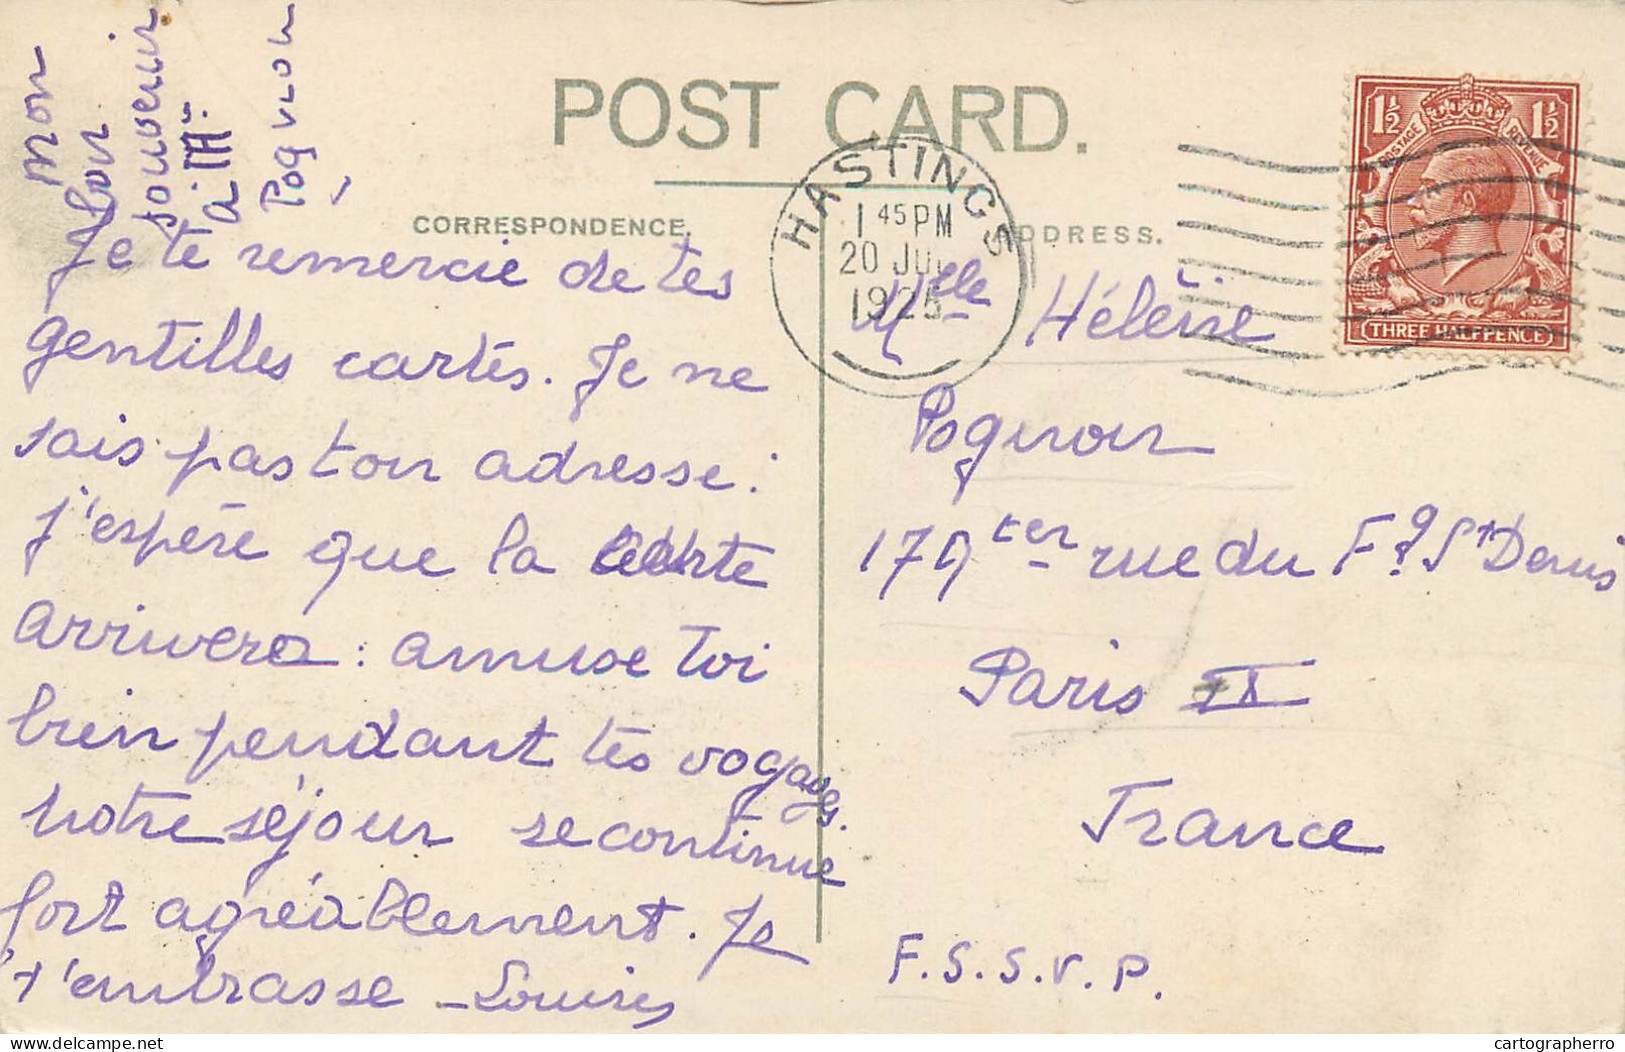 Mon
bon
souvenir
à Mr
Pognon
POST CARD.
CORRESPONDENCE.
ADDRESS.
HASTINGS
1 45 PM
20 JUL
1925
1½ 1½
POSTAGE REVENUE
THREE HALFPENCE
Je te remercie de tes
gentilles cartes. Je ne
sais pas ton adresse :
j'espère que la carte
arrivera : amuse toi
bien pendant tes voyages.
Notre séjour se continue
fort agréablement. Je
t'embrasse - Louise
Mlle Hélène
Pognon
179 ter rue du Fg St Denis
Paris IX
France
F. S. S. V. P.
cartographerro